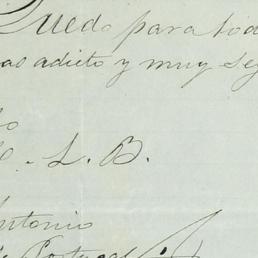 Quedo para toda
as adicto y muy seg
o
. L. B.
Antonio
Portugal